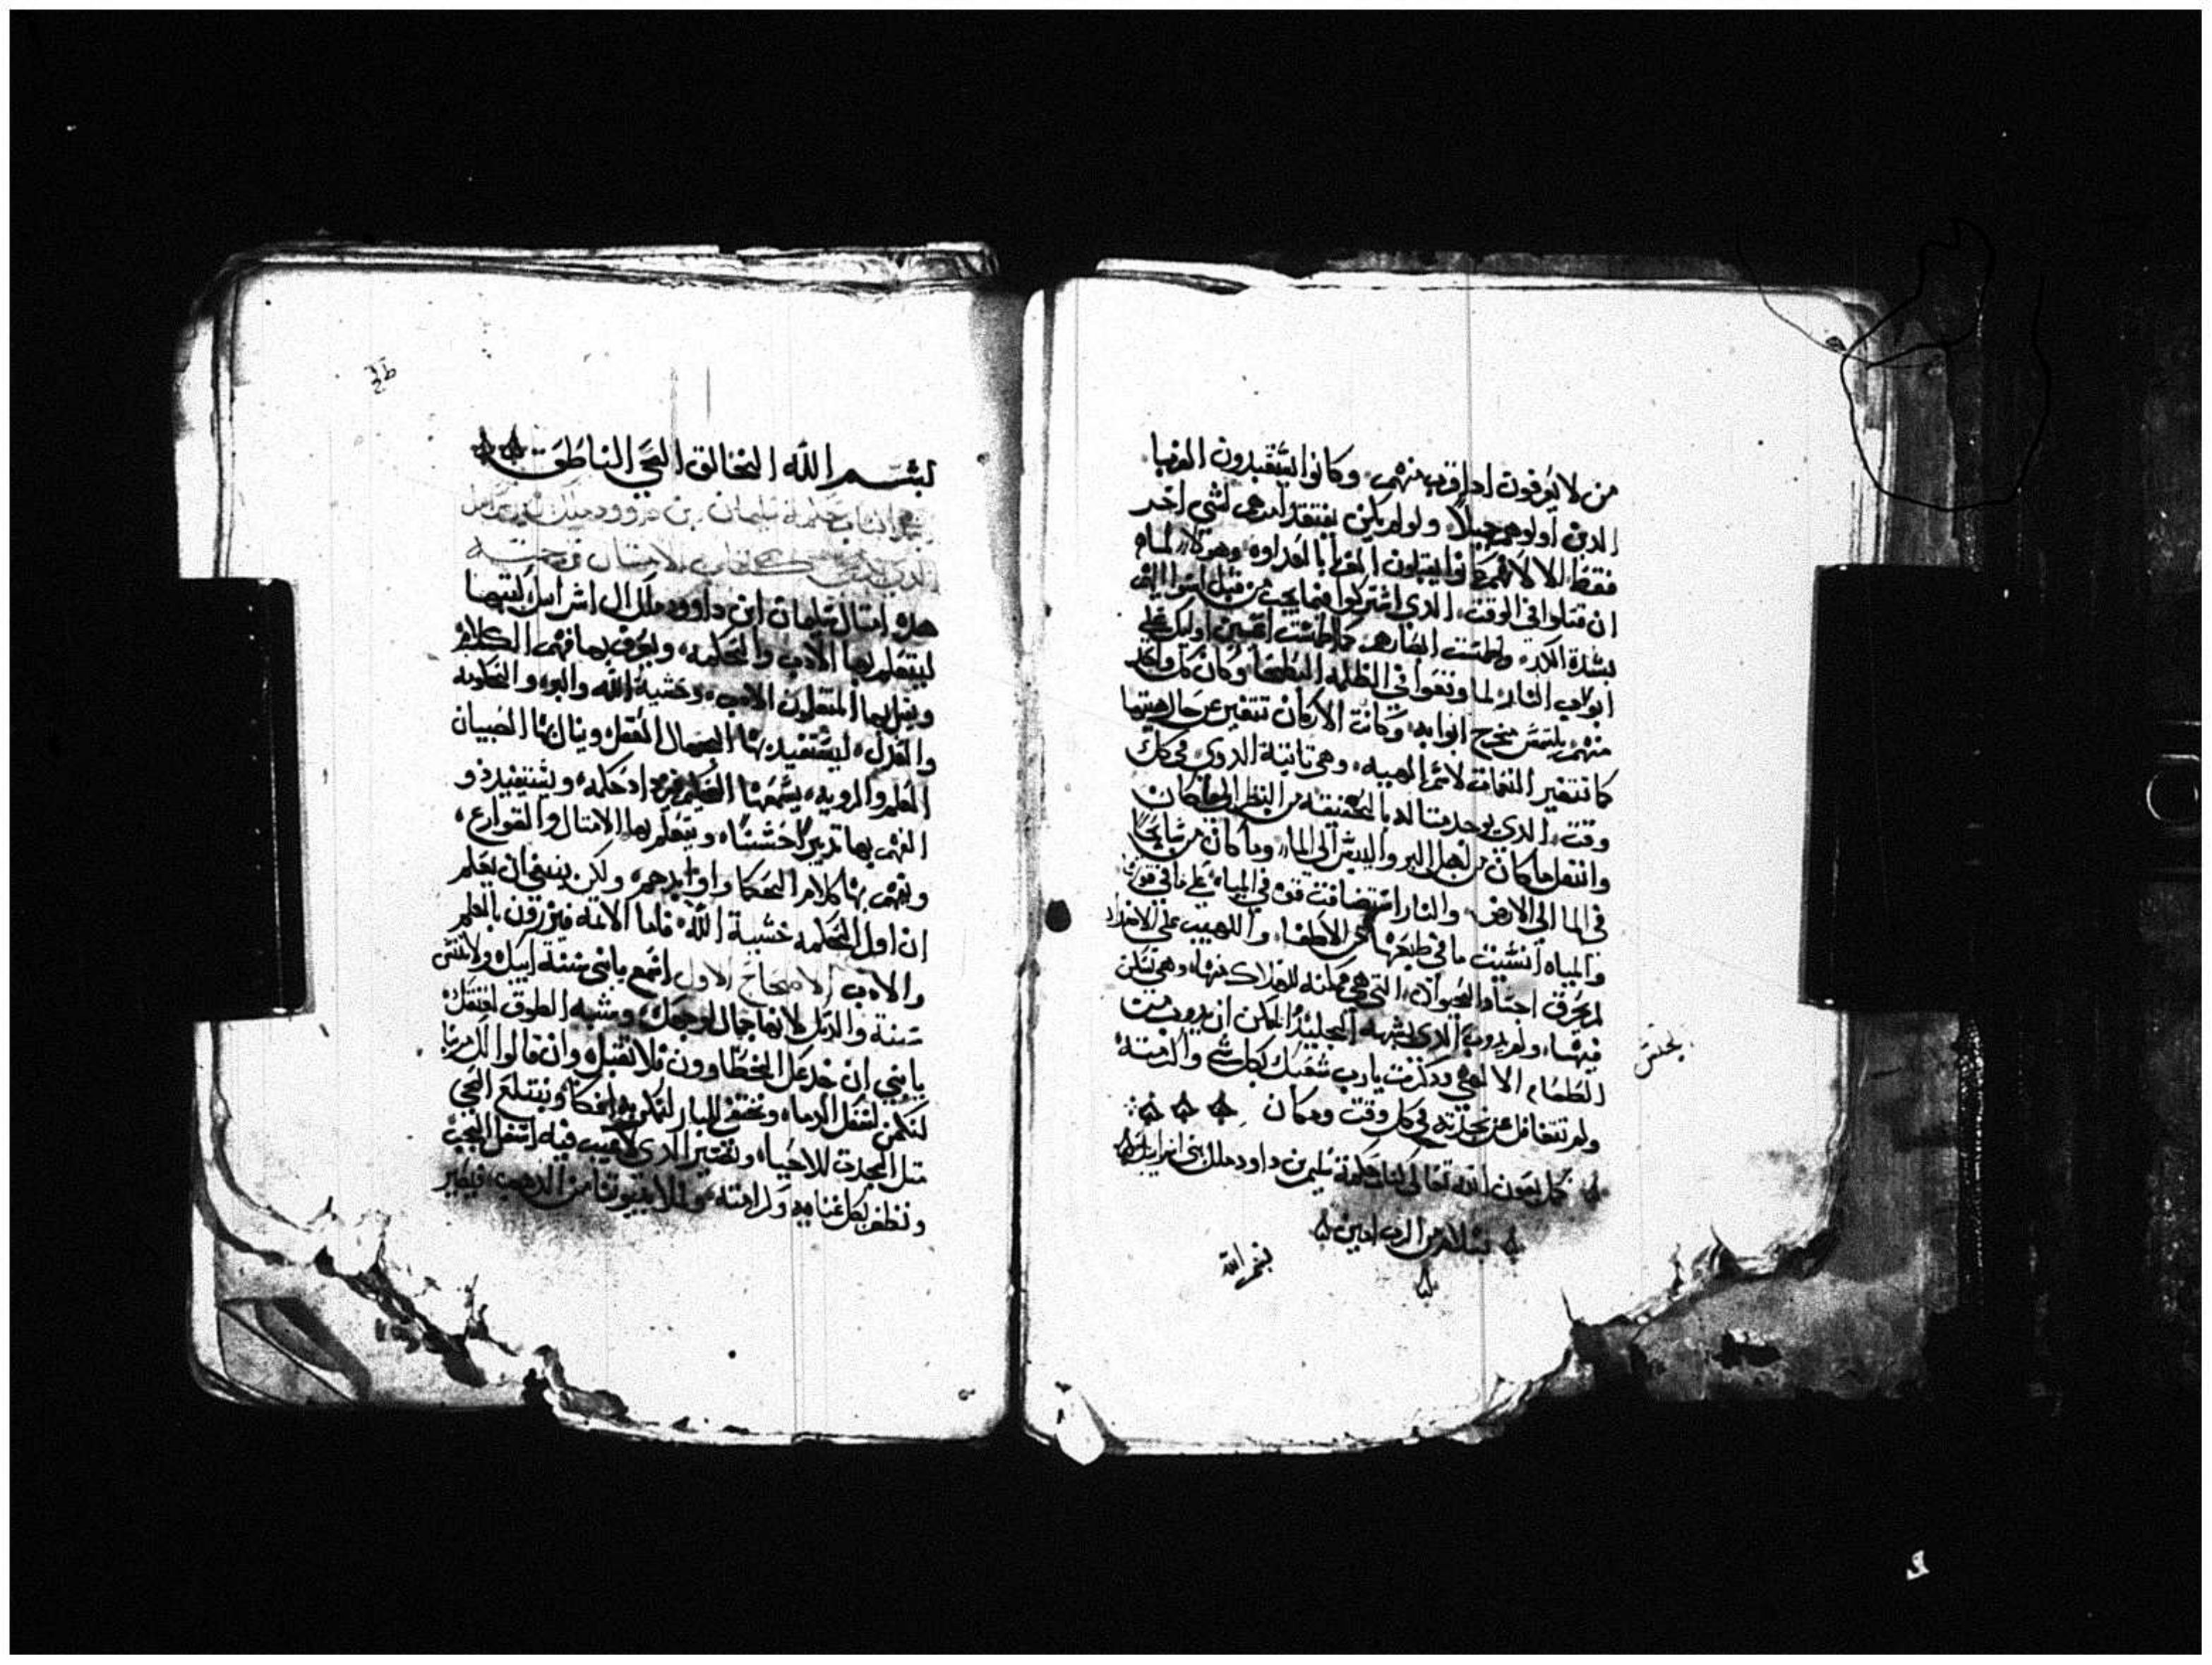 من لا يعرفون اذا قرب منهم وكانوا يستعبدون الغربا
الذين اولوهم جميلاً ولو لم يكن يفتقدا مدهى لشى اخر
فقط الا لانهم كانوا يقبلون الغربا بالعداوه وهولاء لما
ان قتلوا فى الوقت الذي اشتركوا فيما يجب من قبل
بشدة الكد وطمست ابصارهم كما طمست اعين اوليك على
ابواب البار لما وقفوا في الظلمه وكان كل واحد
منهم يلتمس مخرج ابوابه وكانت الاركان تتغير عن حال هيتها
كما تتغير النغمات لاسم الهيبه وهي ثابتة الدوى في كل
وقت الذي يوجد مثاله بالحقيقه من النظر الى ما كان
وانتقل ما كان من اهل البر واليبس الى الما وما كان من سابحاً
في الما الى الارض والنار استضافت قوة في المياه على ما في قوتها
والمياه انسيت ما في طبعها من الاطفاء واللهيب على الاضداد
لم يحرق اجساد الحيوان التي هي ممكنه للهلاك منها وهي تسلك
فيها ولم يذوب الذي يشبه الجليد الممكن ان يذوب من
يحتس
الطعام الالهي وذكرت يارب شعبك بكل شي واكرمته
ولم تتغافل عن نجدته في كل وقت ومكان
كمل بعون الله تعالى كتاب حكمة سليمن بن داود ملك بنى اسراييل
بسلام من الرب امين
بسم الله الخالق الحي الناطق
سليمان بن داوود ملك
كتاب الامثال
هذه امثال سليمان ابن داوود ملك ال اسراييل كتبها
ليتعلم بها الادب والحكمه ويعرف بها فهم الكلام
ويقبل بها المتعلمون الادب وخشية الله والبر والحكمه
والعدل ليستفيد بها الجهال العقل وينال بها الصبيان
العلم والرويه يسمعها الحكيم فيزداد حكمه ويستفيد ذو
الفهم بها تدبيراً حسناً ويتعلم بها الامثال والقوارع
ويفهم بها كلام الحكما واوابدهم ولكن ينبغى ان يعلم
ان اول الحكمه خشية الله فاما الاثمه فيزرون بالعلم
والادب الاصحاح الاول اسمع يابنى سنة ابيك ولا تنسى
سنة والدتك لانها جمال لوجهك وشبه الطوق لعنقك
يابني إن خدعك الخطاوون فلا تقبل وان قالوا لك مر بنا
لنكمن لسفك الدماء ونختفي للبار لنكن به افكاً ونبتلع الحي
مثل الجدث للاحياء ونصير الذي لا عيب فيه اسفل الجب
ونظفر بكل غناه وكرامته ونملا بيوتنا من الذهب فيصير